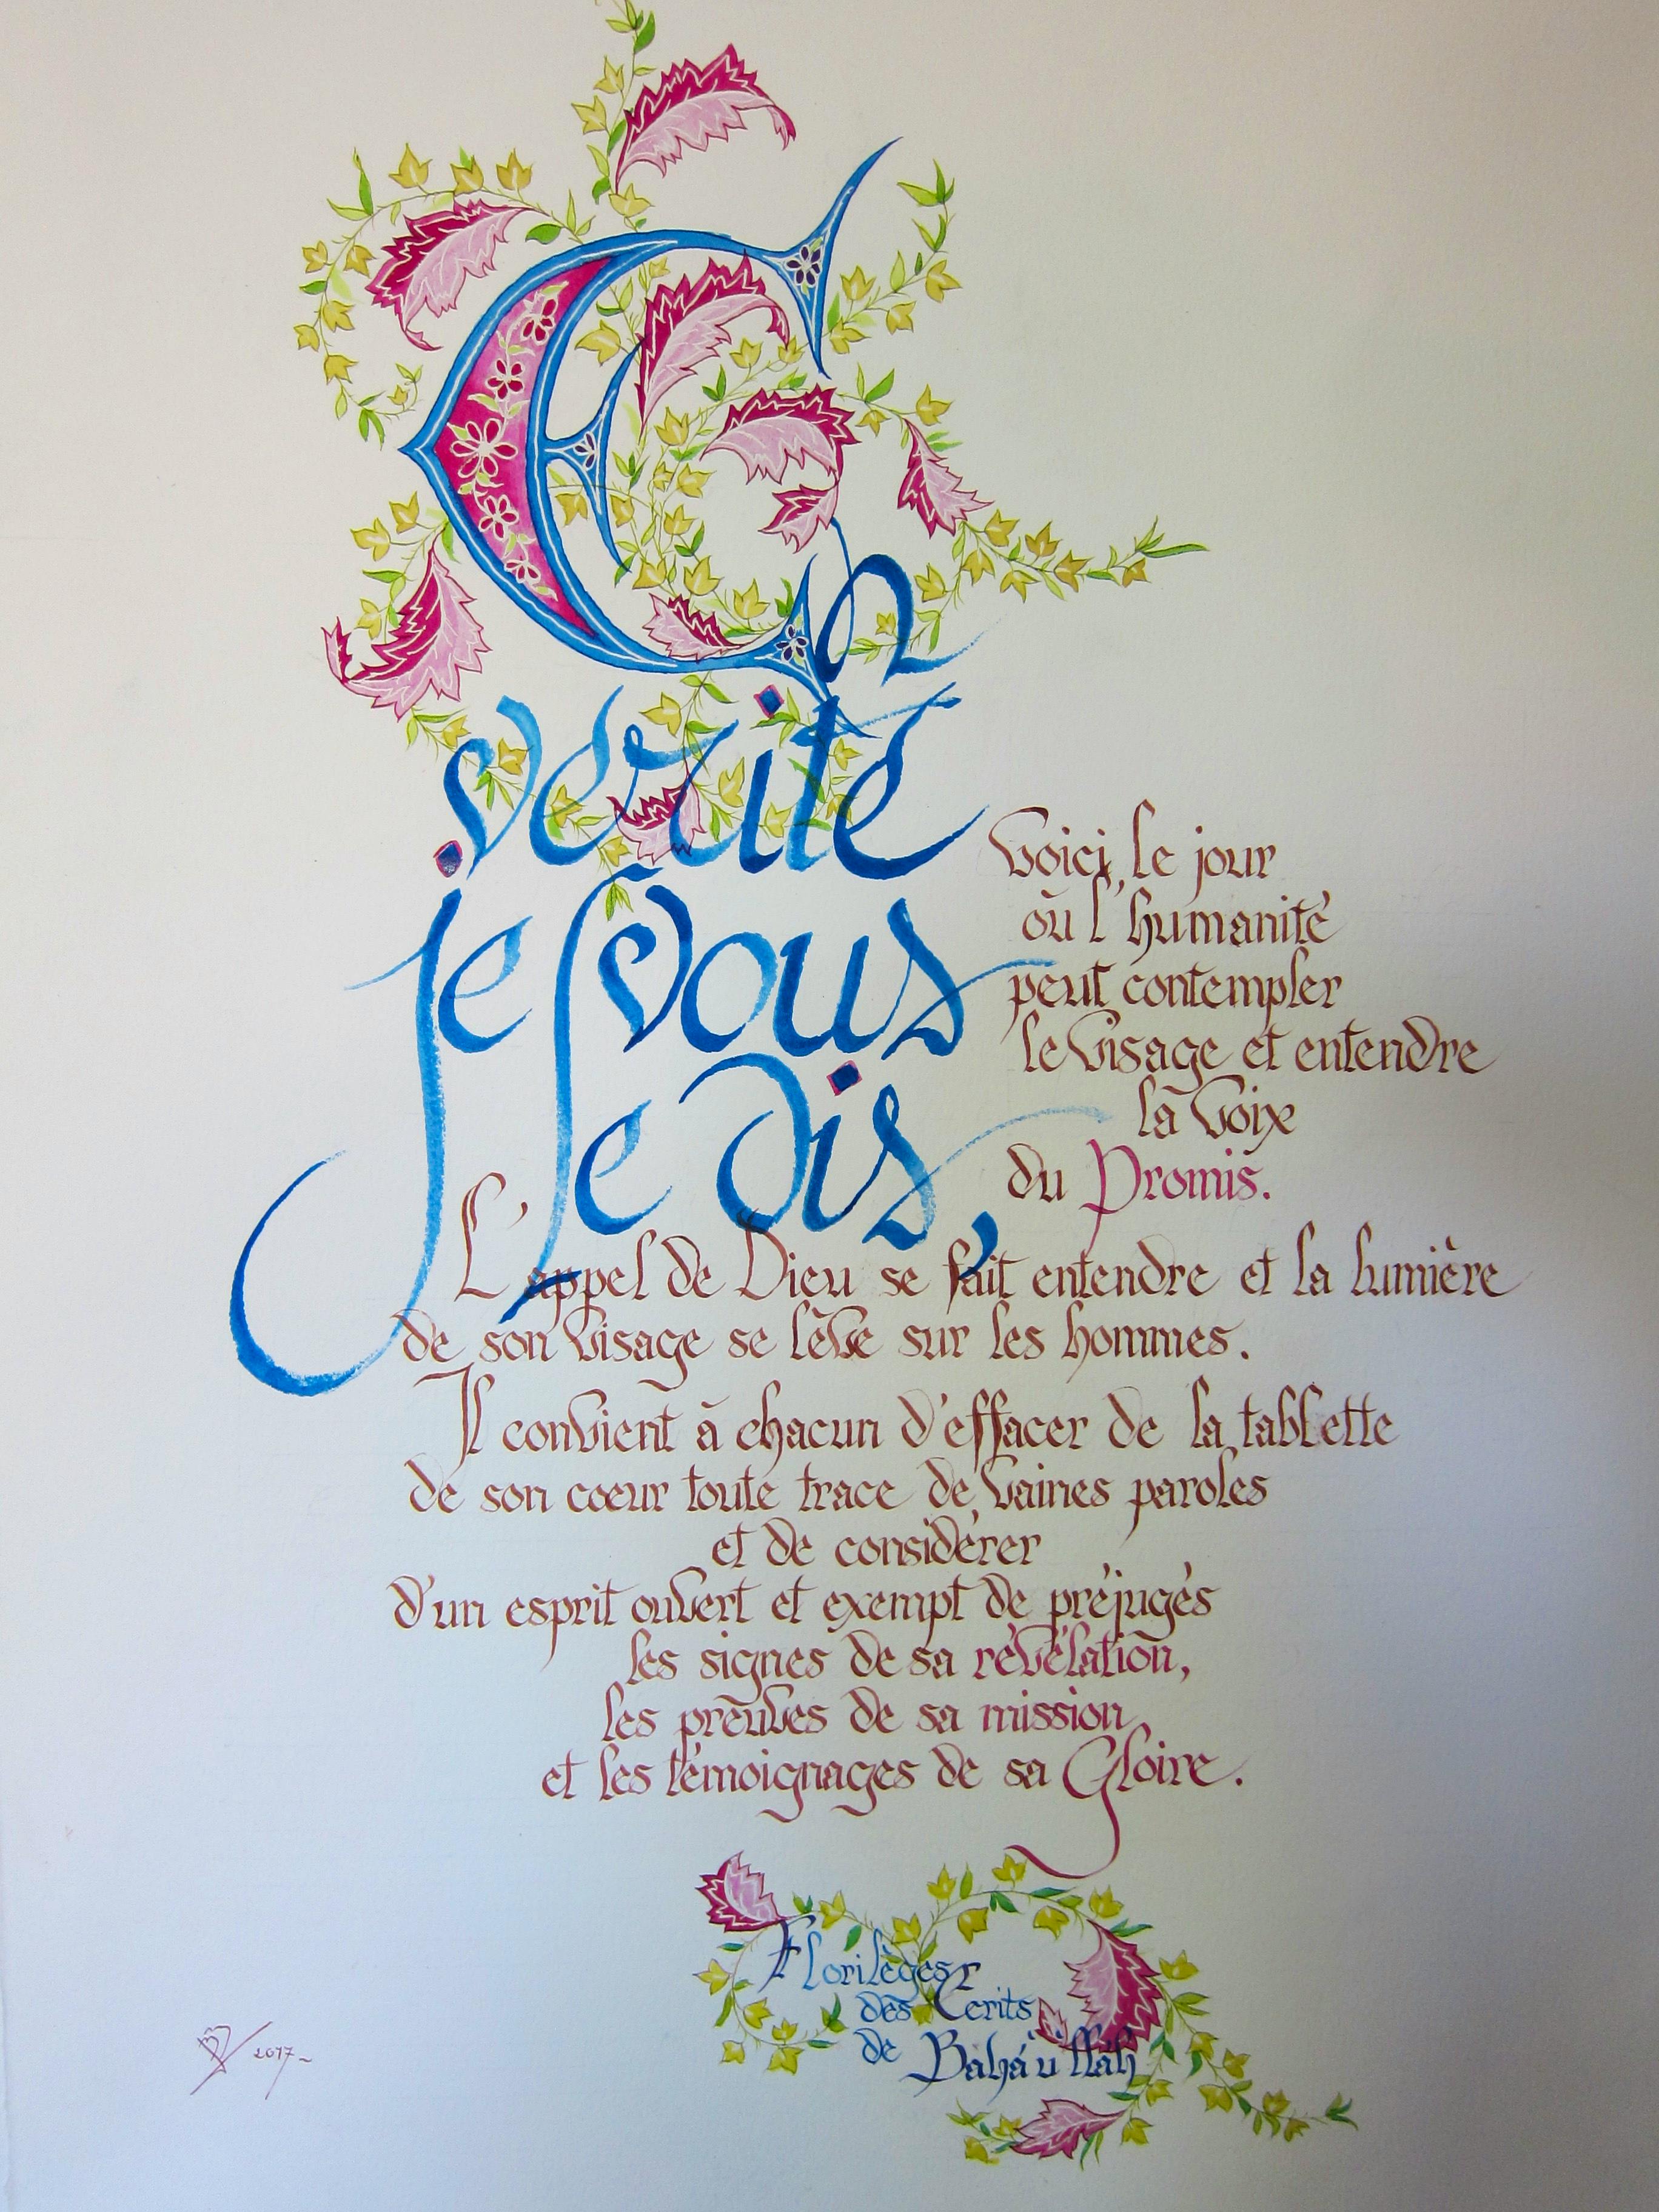 En
vérité
je vous
le dis,
voici le jour
où l'humanité
peut contempler
le visage et entendre
la voix
du Promis.
L'appel de Dieu se fait entendre et la lumière
de son visage se lève sur les hommes.
Il convient à chacun d'effacer de la tablette
de son cœur toute trace de vaines paroles
et de considérer
d'un esprit ouvert et exempt de préjugés
les signes de sa révélation,
les preuves de sa mission
et les témoignages de sa Gloire.
Florilèges
des Ecrits
de Bahá'u'lláh
2017